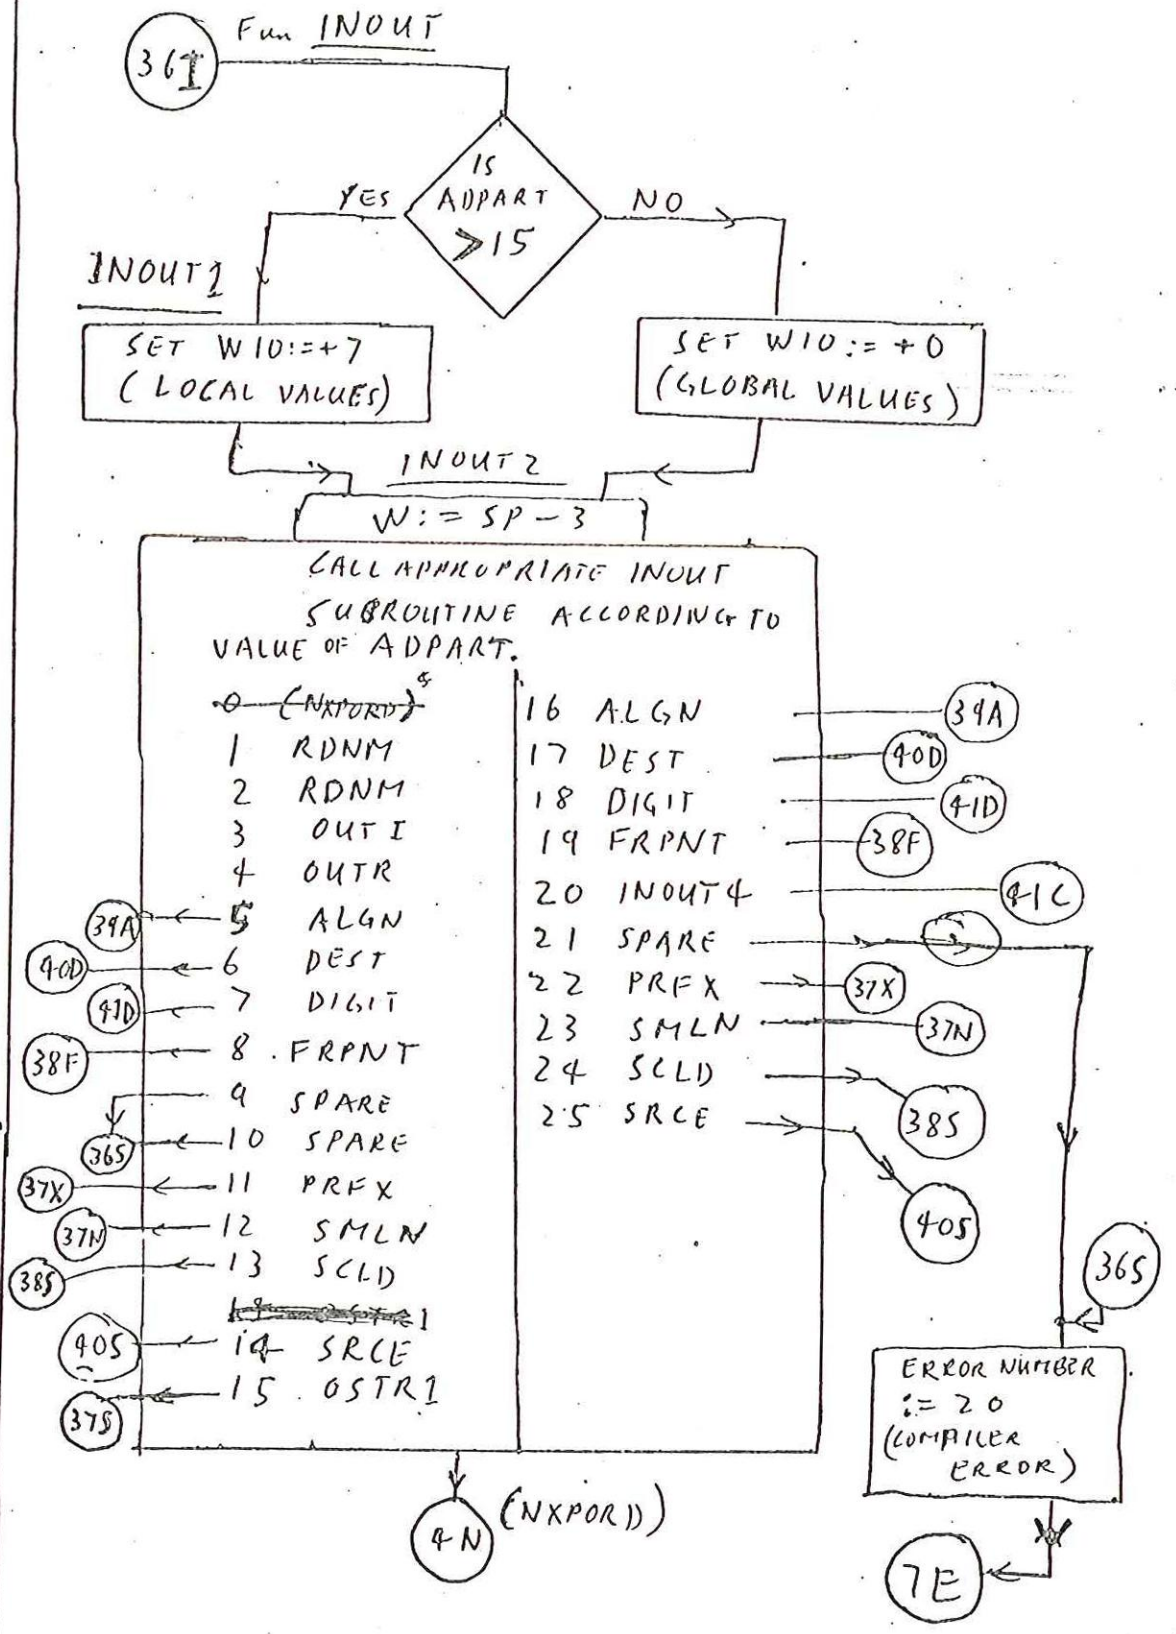 Fun INOUT
36I
IS
ADPART
>15
YES
NO
INOUT1
SET W10:=+7
(LOCAL VALUES)
SET W10:=+0
(GLOBAL VALUES)
INOUT2
W:= SP-3
CALL APPROPRIATE INOUT
SUBROUTINE ACCORDING TO
VALUE OF ADPART.
0 (NXPORD)
1 RDNM
2 RDNM
3 OUTI
4 OUTR
39A 5 ALGN
40D 6 DEST
41D 7 DIGIT
38F 8 FRPNT
9 SPARE
36S 10 SPARE
37X 11 PRFX
37N 12 SMLN
38S 13 SCLD
40S 14 SRCE
37S 15 OSTR1
16 ALGN 39A
17 DEST 40D
18 DIGIT 41D
19 FRPNT 38F
20 INOUT4 41C
21 SPARE
22 PRFX 37X
23 SMLN 37N
24 SCLD 38S
25 SRCE 40S
36S
ERROR NUMBER
:= 20
(COMPILER
ERROR)
7E
4N (NXPORD)